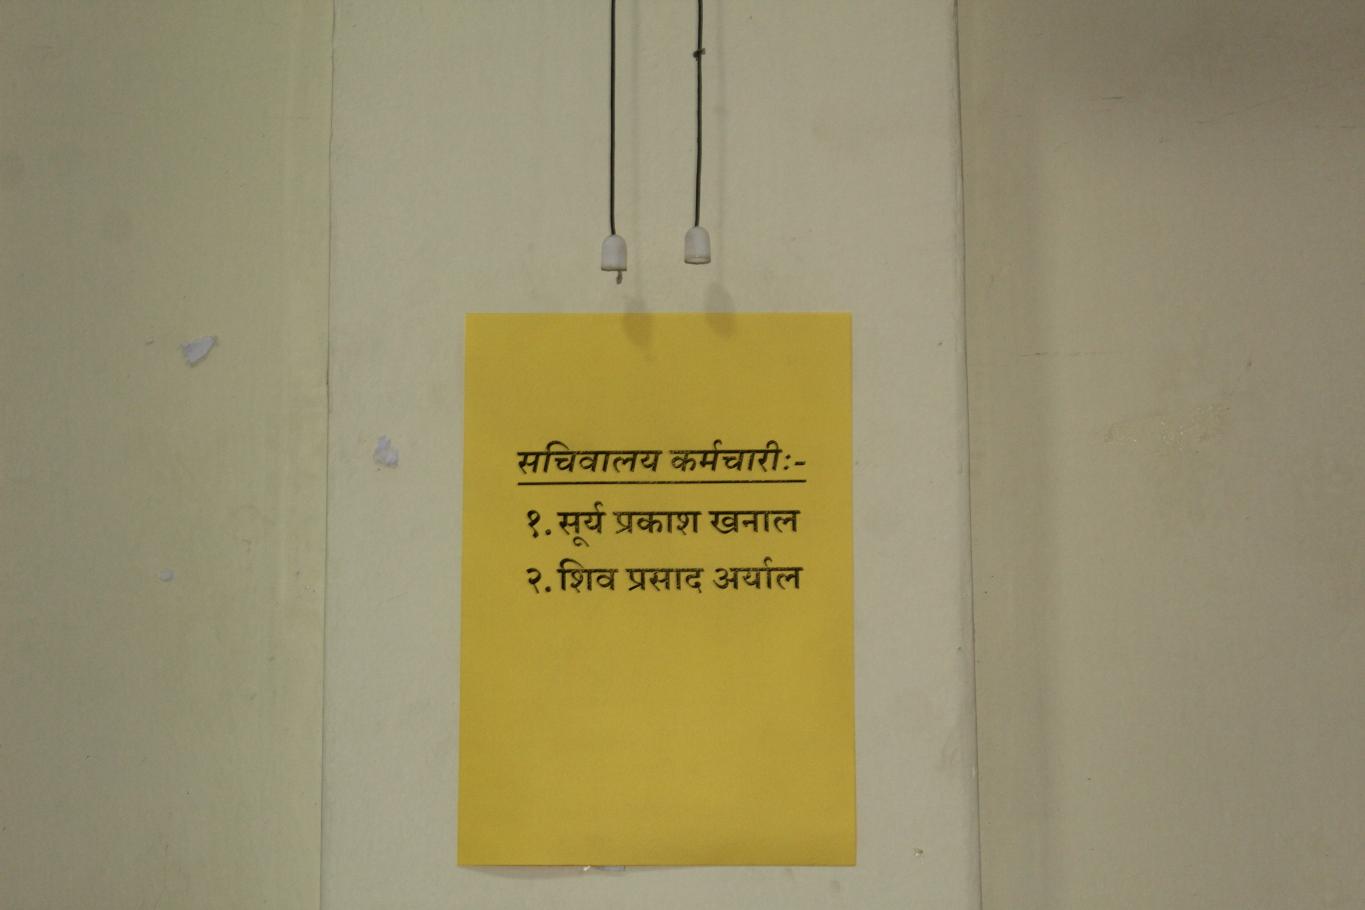 सचिवालय कर्मचारीः-
१. सूर्य प्रकाश खनाल
२. शिव प्रसाद अर्याल